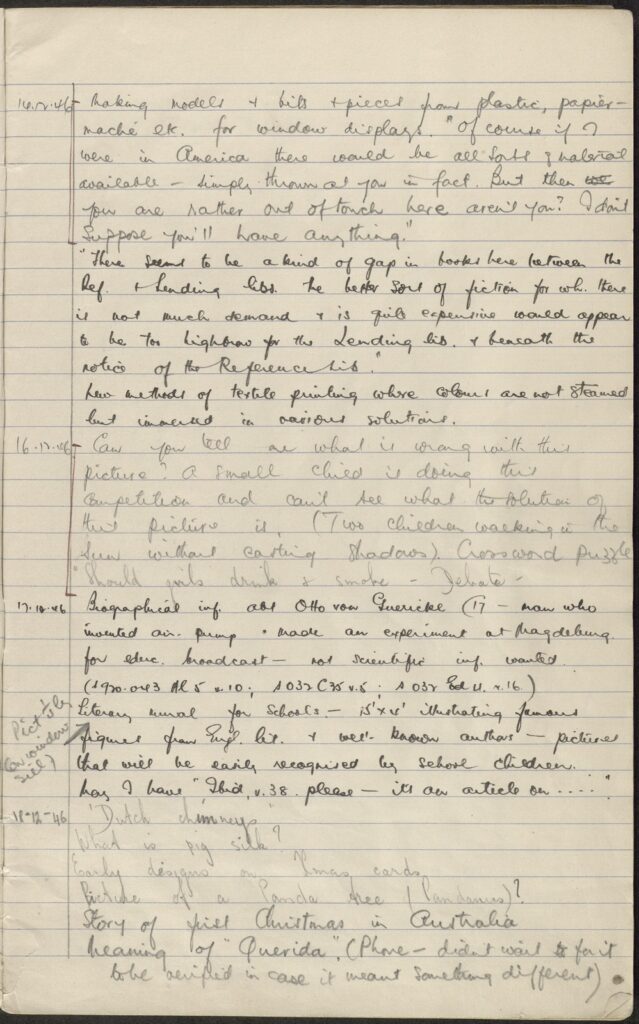 14.12.46 Making models & bits & pieces from plastic, papier-
maché etc. for window displays. "Of course if I
were in America there would be all sorts of material
available – simply thrown at you in fact. But then
you are rather out of touch here aren't you? I don't
suppose you'll have anything."
"There seems to be a kind of gap in books here between the
Ref. & Lending libs. The better sort of fiction for wh. there
is not much demand & is quite expensive would appear
to be too highbrow for the Lending lib. & beneath the
notice of the Reference Lib."
New methods of textile printing where colours are not steamed
but immersed in various solutions.
16.12.46 Can you tell me what is wrong with this
picture? A small child is doing this
competition and can't see what the solution of
this picture is. (Two children walking in the
sun without casting shadows). Crossword puzzle
"Should girls drink & smoke – Debate –
17.12.46 Biographical inf. abt Otto von Guericke (17 – man who
invented air-pump & made an experiment at Magdeburg
for educ. broadcast – not scientific inf. wanted
v.10; S032 C35 v.5; S032 Ed.11. v.16.)
Literary mural for Schools – illustrating famous
figures from Engl. lit. & well-known authors – pictures
that will be easily recognised by school children.
Pict's by
(on window
sill)
May I have "Ibid, v.38. please – it's an article on ....."
18-12-46 'Dutch chimneys'
What is pig silk?
Early designs on Xmas cards
Picture of a Panda tree (Pandanus)?
Story of first Christmas in Australia
Meaning of "Querida". (Phone – didn't wait for it
to be verified in case it meant something different)